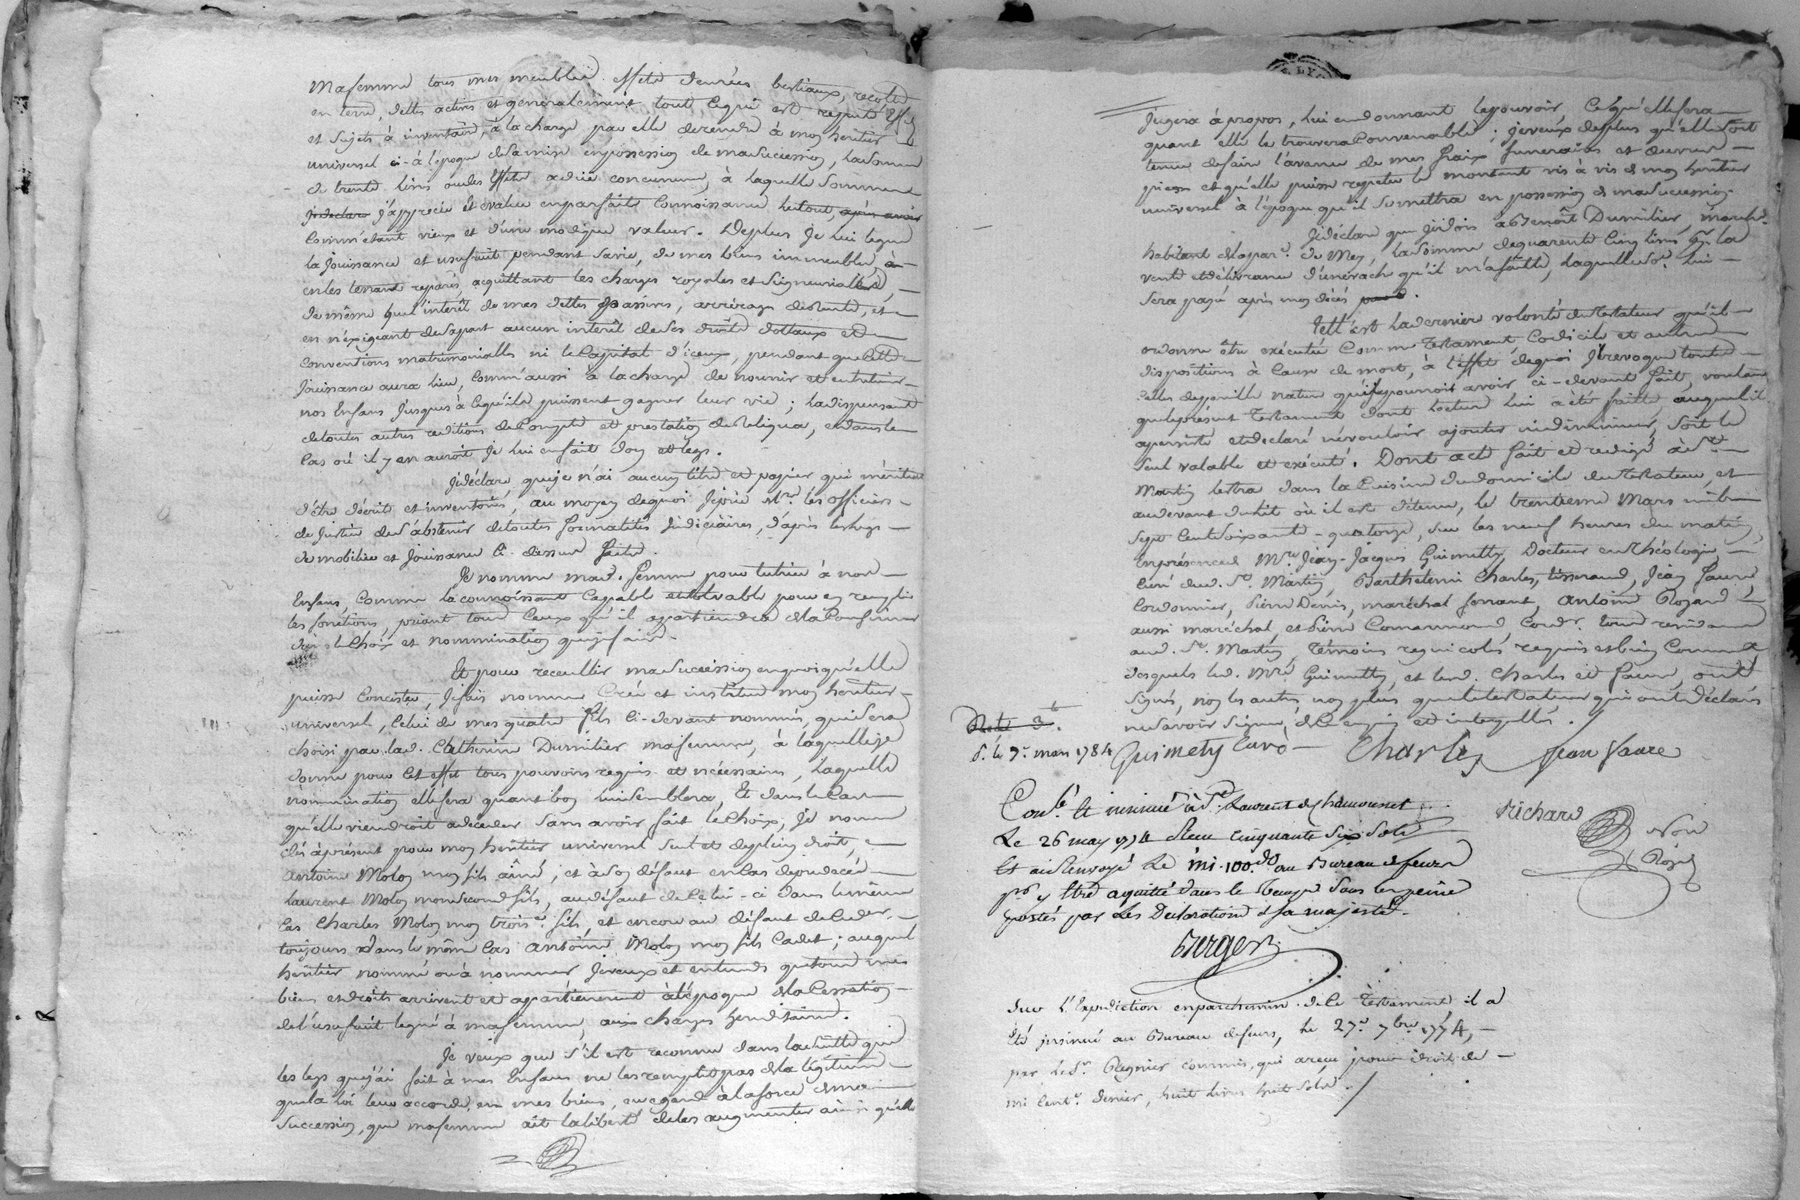 mafemme tous mes meubles effets denrées bestiaux, recolte
en terre, dettes actives et generalement tout ce qui est reputé
et sujets à inventaire, à la charge par elle de rendre à mon heritier
universel à l'époque de sa mise en possession de ma succession, la somme
de trente livres ou des effets à due concurence, à laquelle somme
j'apprecie et evalue en parfaite connoissance le tout,
comm'etant vieux et d'une modique valeur. Deplus je lui legue
la jouissance et usufruit pendant sa vie, de mes biens immeubles, à
en les tenant reparés, acquittant les charges royales et seigneurialles,
de même que l'interêt de mes dettes passives, arrérages de rente, et
en n'éxigeant de sa part aucun interêt de ses droits dottaux et
conventions matrimonialles ni le capital d'iceux, pendant que cette
jouissance aura lieu, comm'aussi à la charge de nourrir et entretenir
nos enfans jusques à ce qu'ils puissent gagner leur vie; la dispensant
de toutes autres redditions de compte et prestation de reliqua, et dans le
cas où il y en auroit je lui en fait don et legs.
Je déclare que je n'ai aucun titre et papier qui méritent
d'être décrit et inventoriés, au moyen de quoi je prie Mrs. les officiers
de justice de s'abstenir de toutes formalités judiciaires, d'après le legs
de mobilier et jouissance ci-dessus faite.
Je nomme mad. femme pour tutrice à nos
enfans, comme la connoissant capable et solvable pour en remplir
les fonctions, priant tous ceux qu'il appartiendra de la confirmer
le choix et nommination que je fais.
Et pour recueillir ma succession en quoi qu'elle
puisse concister, je fais nomme crée et institue mon heritier
universel, celui de mes quatre fils ci-devant nommés, qui sera
choisi par lad. Catherine Dumilier ma femme, à laquelle je
donne pour cet effet tous pouvoirs requis et nécessaires, laquelle
nommination elle fera quant bon lui semblera, et dans le cas
qu'elle viendroit à deceder sans avoir fait le choix, je nomme
dès à présent pour mon heritier universel seul et de plein droit,
Antoine Molon mon fils aîné, et à son défaut en cas de prédecés
Laurent Molon mon second fils, au défaut de celui-ci dans le même
cas Charles Molon mon trois.e fils, et encore au défaut de ce der.
toujours dans le même cas Antoine Molon mon fils cadet; auquel
heritier nommé ou à nommer je veux et entends que tous mes
biens et droits arrivent et appartiennent à l'époque de la cessation
de l'usufruit legué à ma femme, aux charges hereditaires.
Je veux que s'il est reconnu dans la suitte que
les legs que j'ai fait à mes enfans ne les remplit pas de la légitime
que la loi leur accorde, en mes biens, eu egard à la force de ma
succession, que ma femme ait la liberté de les augmenter ainsi qu'elle
jugera à propos, lui en donnant le pouvoir, ce qu'elle fera
quant elle le trouvera convenable; je veux de plus qu'elle soit
tenue de faire l'avance de mes fraix funeraires et œuvres
pies et qu'elle puisse repeter le montant vis à vis de mon heritier
universel à l'époque qu'il se mettra en possession de ma succession.
Je déclare que je dois à Benoît Dumilier, march.
habitant de la par. de Meys, la somme de quarante cinq livres pr. la
vente et délivrance d'une vach qu'il m'a faitte, laquelle so. lui
sera payé après mes décés.
Telle est la dernier volonté du testateur qu'il
ordonne être exécutée comme testament codicile et autres
dispositions à cause de mort, à l'effet de quoi je revoque toutes
celles de pareille nature que je pourrois avoir ci-devant fait, voulant
que le présent testament dont lecture lui a été faitte auquel il
a persisté et declaré ne vouloir ajouter ni diminuer, soit le
seul valable et exécuté. Dont acte fait et redigé à St.
Martin Lestra dans la cuisine du domicile du testateur, et
au devant du lit où il est détenu, le trentieme mars mil
sept cent soixante-quatorze, sur les neuf heures du matin,
en présence de Mre Jean-Jacques Guimetty, docteur en théologie,
curé dud. St. Martin, Barthelemi Charles, tisserand, Jean Faure
cordonnier, Pierre Denis, maréchal ferrant, Antoine Rozand
aussi maréchal, et Pierre Commarmond cordr. tous residans
aud. St. Martin, témoins regnicoles requis et bien connus,
desquels led. Mre Guimetty, et led. Charles et Faure, ont
signés, non les autres, non plus que le testateur qui ont déclarés
ne savoir signer, de ce enquis et interpellés.
3
d. le 9e. mars 1784 Guimety Curé Charles Jean Faure
Con.lé et insinué à St. Laurent de Chamousset Richard
Le 26 may 1774 Reçu cinquante six sols
Et ai renvoyé le mi. 100.e do au Bureau de feurs
pr. y être aquitté dans le temps sous les peine
portés par les Declarations de sa majesté.
Berger
Nore
Royal
Sur l'expedition en parchemin de ce testament il a
été insinué au Bureau de feurs, le 27e. 7bre 1774,
par le Sr. Regnier commis, qui a reçu pour droit de
mi centme. denier, huit livres huit sols.